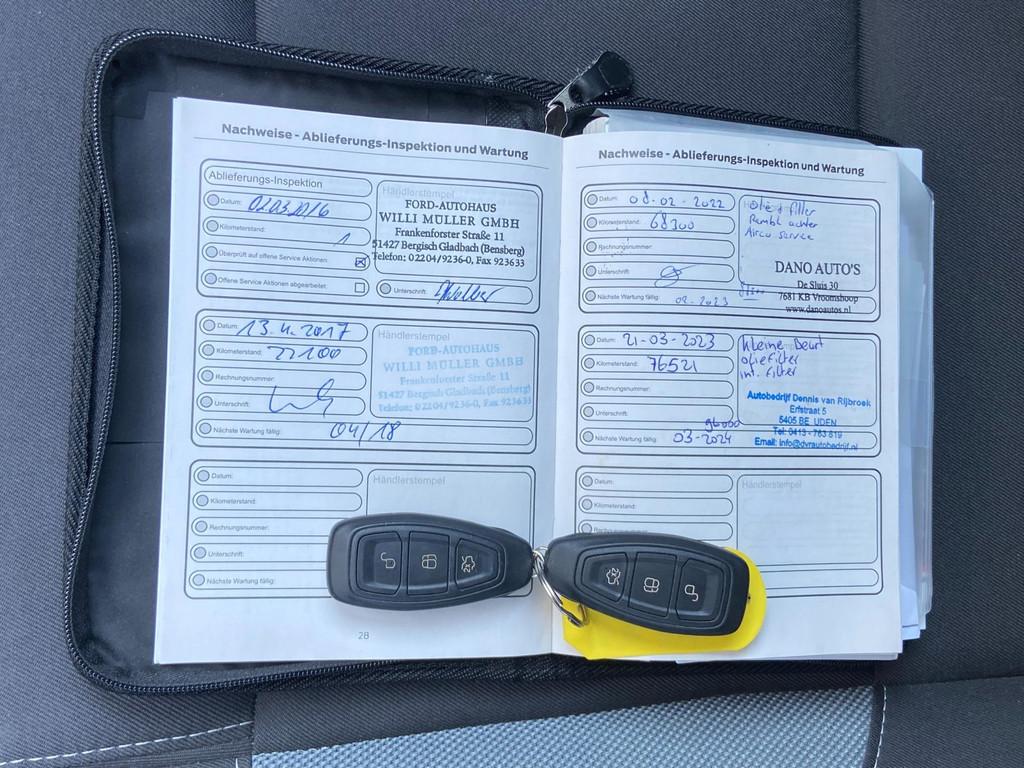 Nachweise - Ablieferungs-Inspektion und Wartung
Ablieferungs-Inspektion
Datum: 02.03.2016
Kilometerstand: 1
Überprüft auf offene Service Aktionen:
Offene Service Aktionen abgearbeitet:
Händlerstempel
FORD-AUTOHAUS
WILLI MÜLLER GMBH
Frankenforster Straße 11
51427 Bergisch Gladbach (Bensberg)
Telefon: 02204/9236-0, Fax 923633
Unterschrift:
Datum: 13.4.2017
Kilometerstand: 22100
Rechnungsnummer:
Unterschrift:
Nächste Wartung fällig: 04/18
Händlerstempel
FORD-AUTOHAUS
WILLI MÜLLER GMBH
Frankenforster Straße 11
51427 Bergisch Gladbach (Bensberg)
Telefon: 02204/9236-0, Fax 923633
Datum:
Kilometerstand:
Rechnungsnummer:
Unterschrift:
Nächste Wartung fällig:
Händlerstempel
28
Nachweise - Ablieferungs-Inspektion und Wartung
Datum: 08-02-2022
Kilometerstand: 68300
Rechnungsnummer:
Unterschrift:
Nächste Wartung fällig: 02-2023
Olie + filter
Rembl achter
Airco service
DANO AUTO'S
De Sluis 30
7681 KB Vroomshoop
www.danoautos.nl
Datum: 21-03-2023
Kilometerstand: 76521
Rechnungsnummer:
Unterschrift:
Nächste Wartung fällig: 03-2024
96000
Kleine Beurt
oliefilter
int. filter
Autobedrijf Dennis van Rijbroek
Erfstraat 5
5405 BE UDEN
Tel: 0413-763 819
Email: info@dvrautobedrijf.nl
Datum:
Kilometerstand:
Händlerstempel